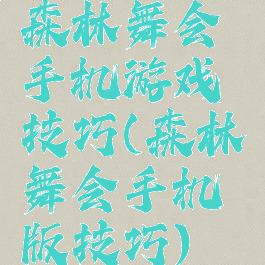 森林舞会
手机游戏
技巧(森林
舞会手机
版技巧)